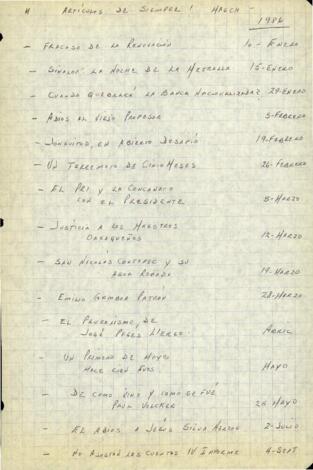 ARTÍCULOS DE SIEMPRE! MAGCH -
1986
- FRACASO DE LA RENOVACIÓN 10 - ENERO
- SINALOA: LA NOCHE DE LA METRALLA 15-ENERO
- CUANDO QUEBRARÁ LA BANCA NACIONALIZADA? 29-ENERO
- ADIOS AL VIEJO PROFESOR 5-FEBRERO
- JONGUITUD, EN ABIERTO DESAFÍO 19-FEBRERO
- UN TERREMOTO DE CINCO MESES 26-FEBRERO
- EL PRI Y LA CONCANACO
CON EL PRESIDENTE 5-MARZO
- JUSTICIA A LOS MAESTROS
OAXAQUEÑOS 12-MARZO
- SAN NICOLÁS Y SU
AGUA ROBADA 19-MARZO
- EMILIO GAMBOA PATRÓN 28-MARZO
- EL PLURALISMO, DE
JOSÉ PAGÉS LLERGO ABRIL
- UN PRIMERO DE MAYO
HACE CIEN AÑOS. MAYO
- DE COMO VINO Y COMO SE FUÉ
PAUL VOLCKER 28 MAYO
- EL ADIOS A JESÚS SILVA HERZOG 2-JULIO
- NO AJUSTAN LAS CUENTAS IV INFORME 4-SEPT